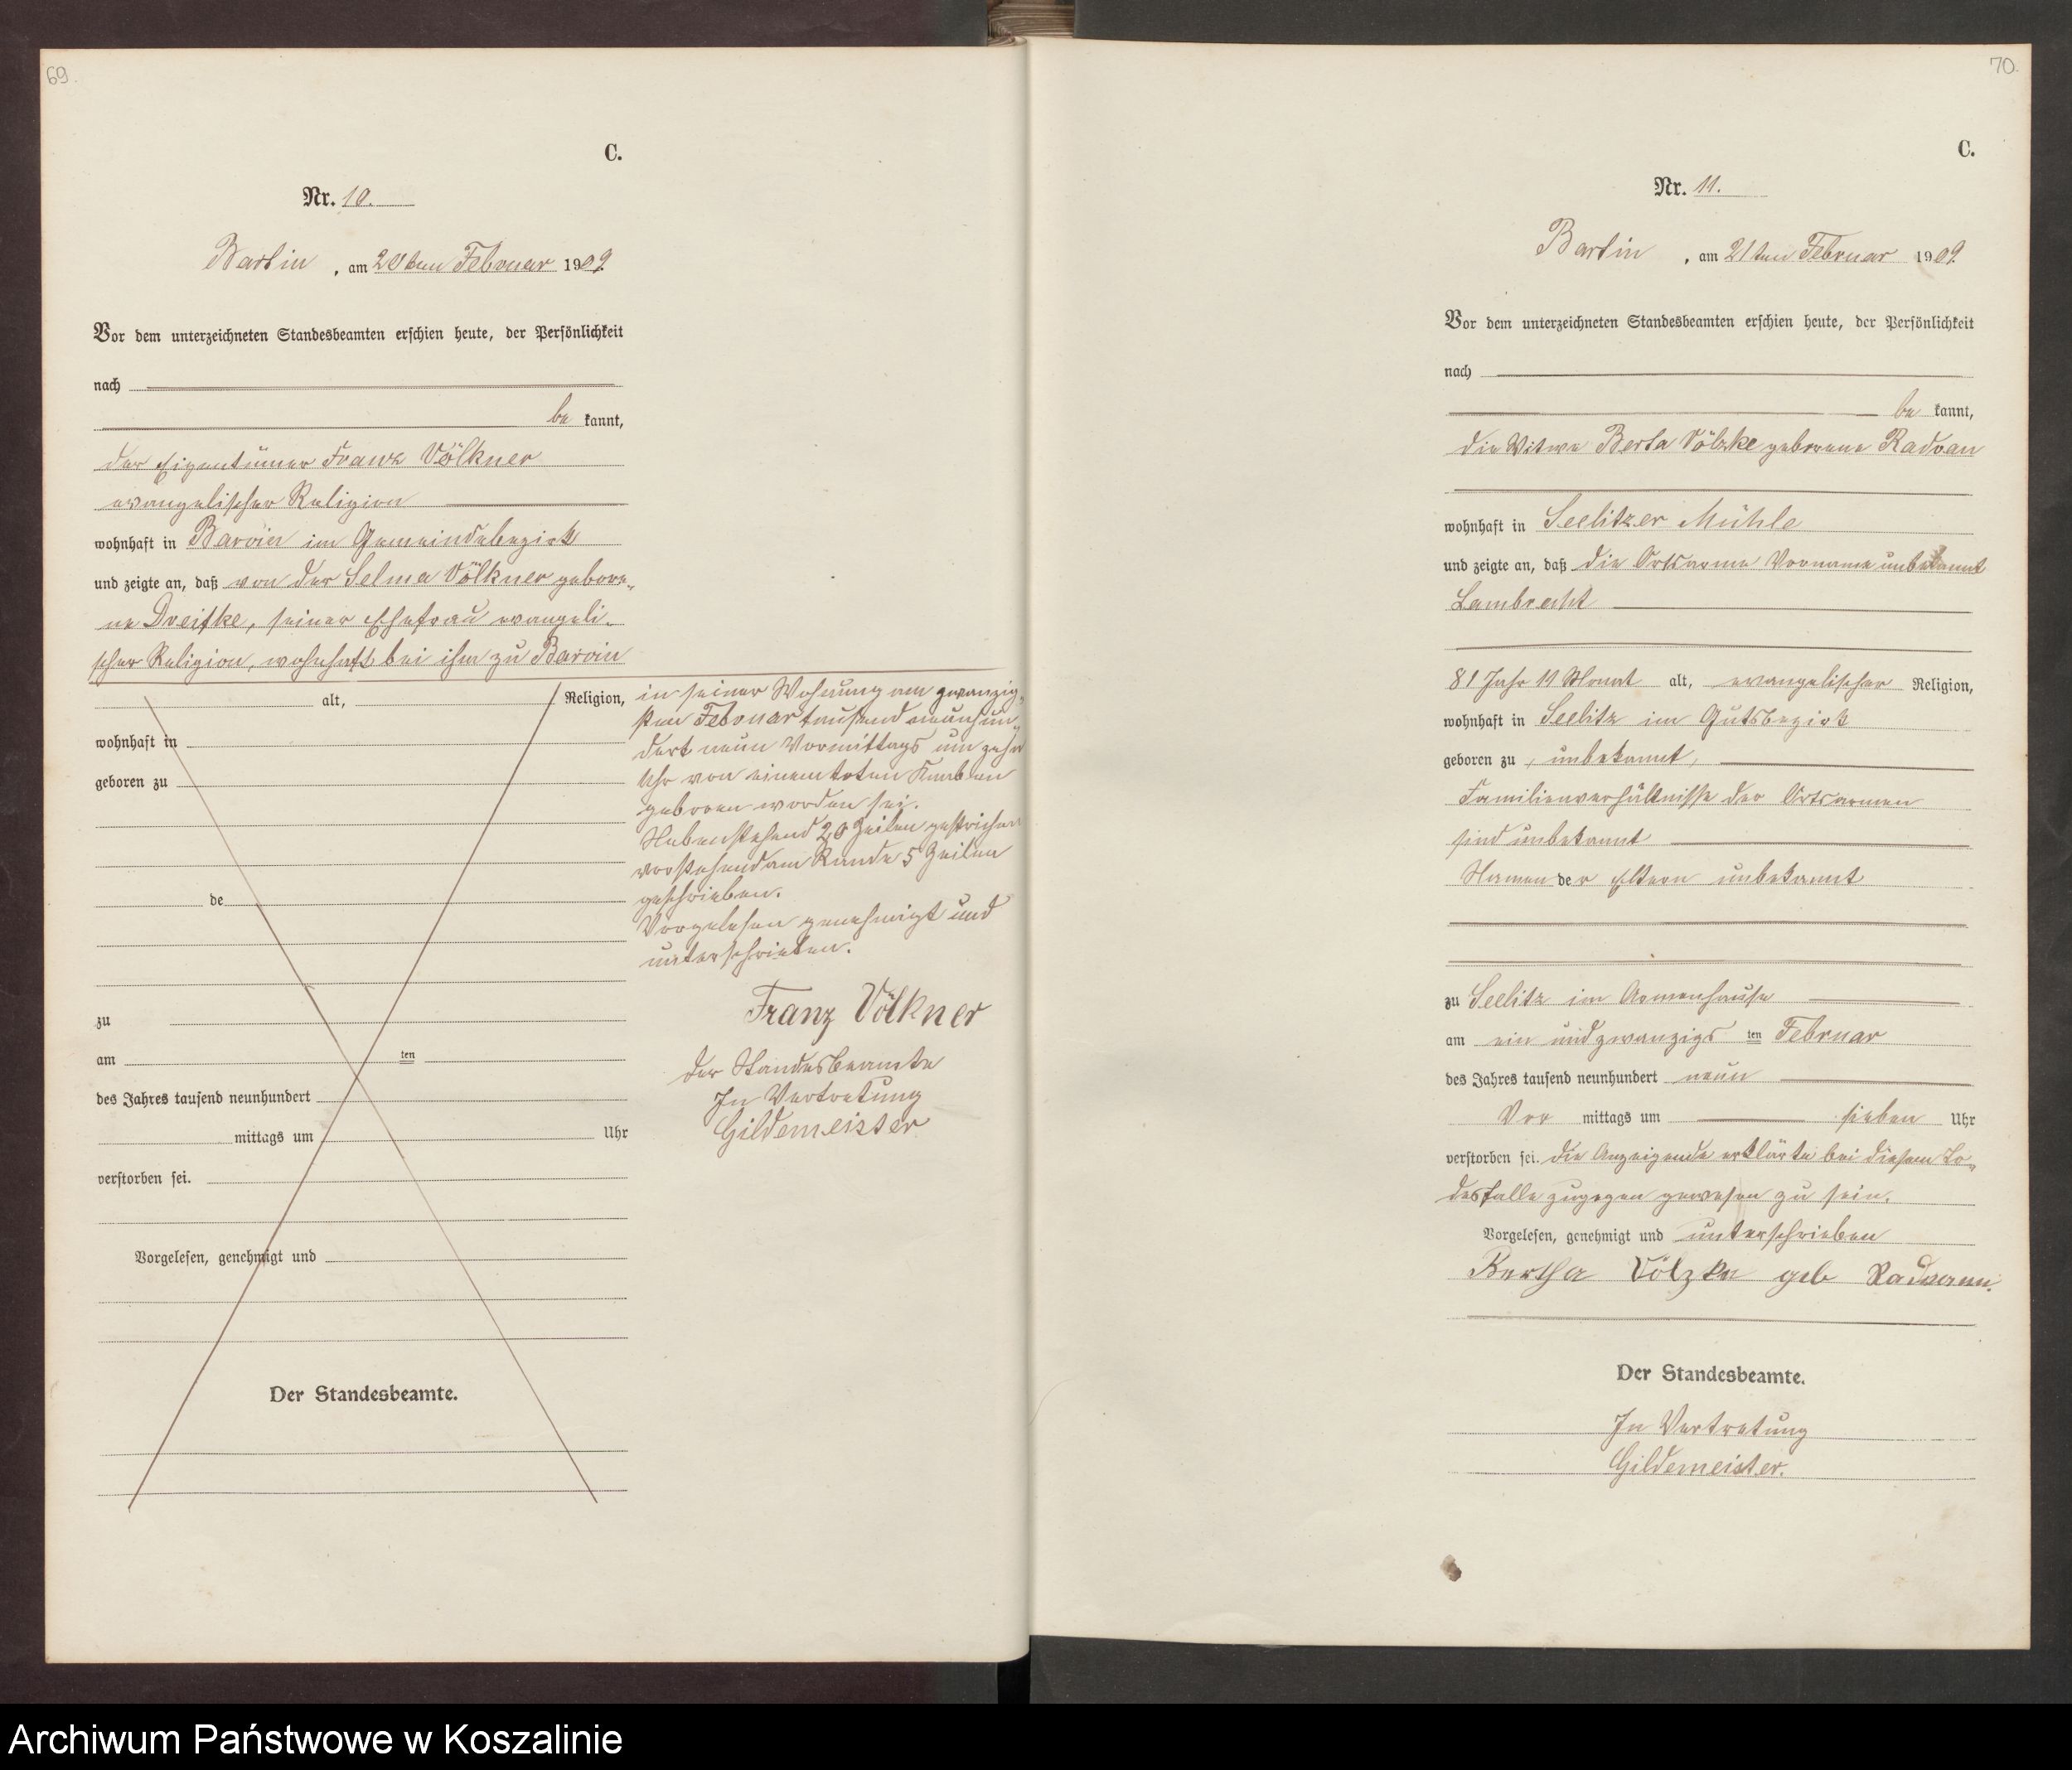 69.
C.
Nr. 10.
Bartin, am 20ten Februar 1909.
Vor dem unterzeichneten Standesbeamten erschien heute, der Persönlichkeit
nach
be kannt,
der Eigentümer Franz Völkner
evangelischer Religion
wohnhaft in Barvin im Gemeindebezirk
und zeigte an, daß von der Selma Völkner gebore-
ne Dreifke, seiner Ehefrau evangeli-
scher Religion, wohnhaft bei ihm zu Barvin
alt, Religion,
wohnhaft in
geboren zu
de
zu
am ten
des Jahres tausend neunhundert
mittags um Uhr
verstorben sei.
Vorgelesen, genehmigt und
Der Standesbeamte.
in seiner Wohnung am zwanzig-
sten Februar tausend neunhun-
dert neun Vormittags um zehn
Uhr von einem toten Knaben
geboren worden sei.
Nebenstehend 20 Zeilen gestrichen
vorstehend am Rande 5 Zeilen
geschrieben.
Vorgelesen genehmigt und
unterschrieben.
Franz Völkner
Der Standesbeamte
In Vertretung
Gildemeister
70.
C.
Nr. 11.
Bartin, am 21ten Februar 1909.
Vor dem unterzeichneten Standesbeamten erschien heute, der Persönlichkeit
nach
be kannt,
die Witwe Berta Völzke geborene Radvan
wohnhaft in Seelitzer Mühle
und zeigte an, daß die Ortsarme Vorname unbekannt
Lambrecht
81 Jahr 11 Monat alt, evangelischer Religion,
wohnhaft in Seelitz im Gutsbezirk
geboren zu, unbekannt,
Familienverhältnisse der Ortsarmen
sind unbekannt
Namen der Eltern unbekannt
zu Seelitz im Armenhause
am ein und zwanzigs ten Februar
des Jahres tausend neunhundert neun
Vor mittags um sieben Uhr
verstorben sei. Die Anzeigende erklärte bei diesem To-
desfalle zugegen gewesen zu sein.
Vorgelesen, genehmigt und unterschrieben
Bertha Völzke geb Radvann.
Der Standesbeamte.
In Vertretung
Gildemeister.
Archiwum Państwowe w Koszalinie